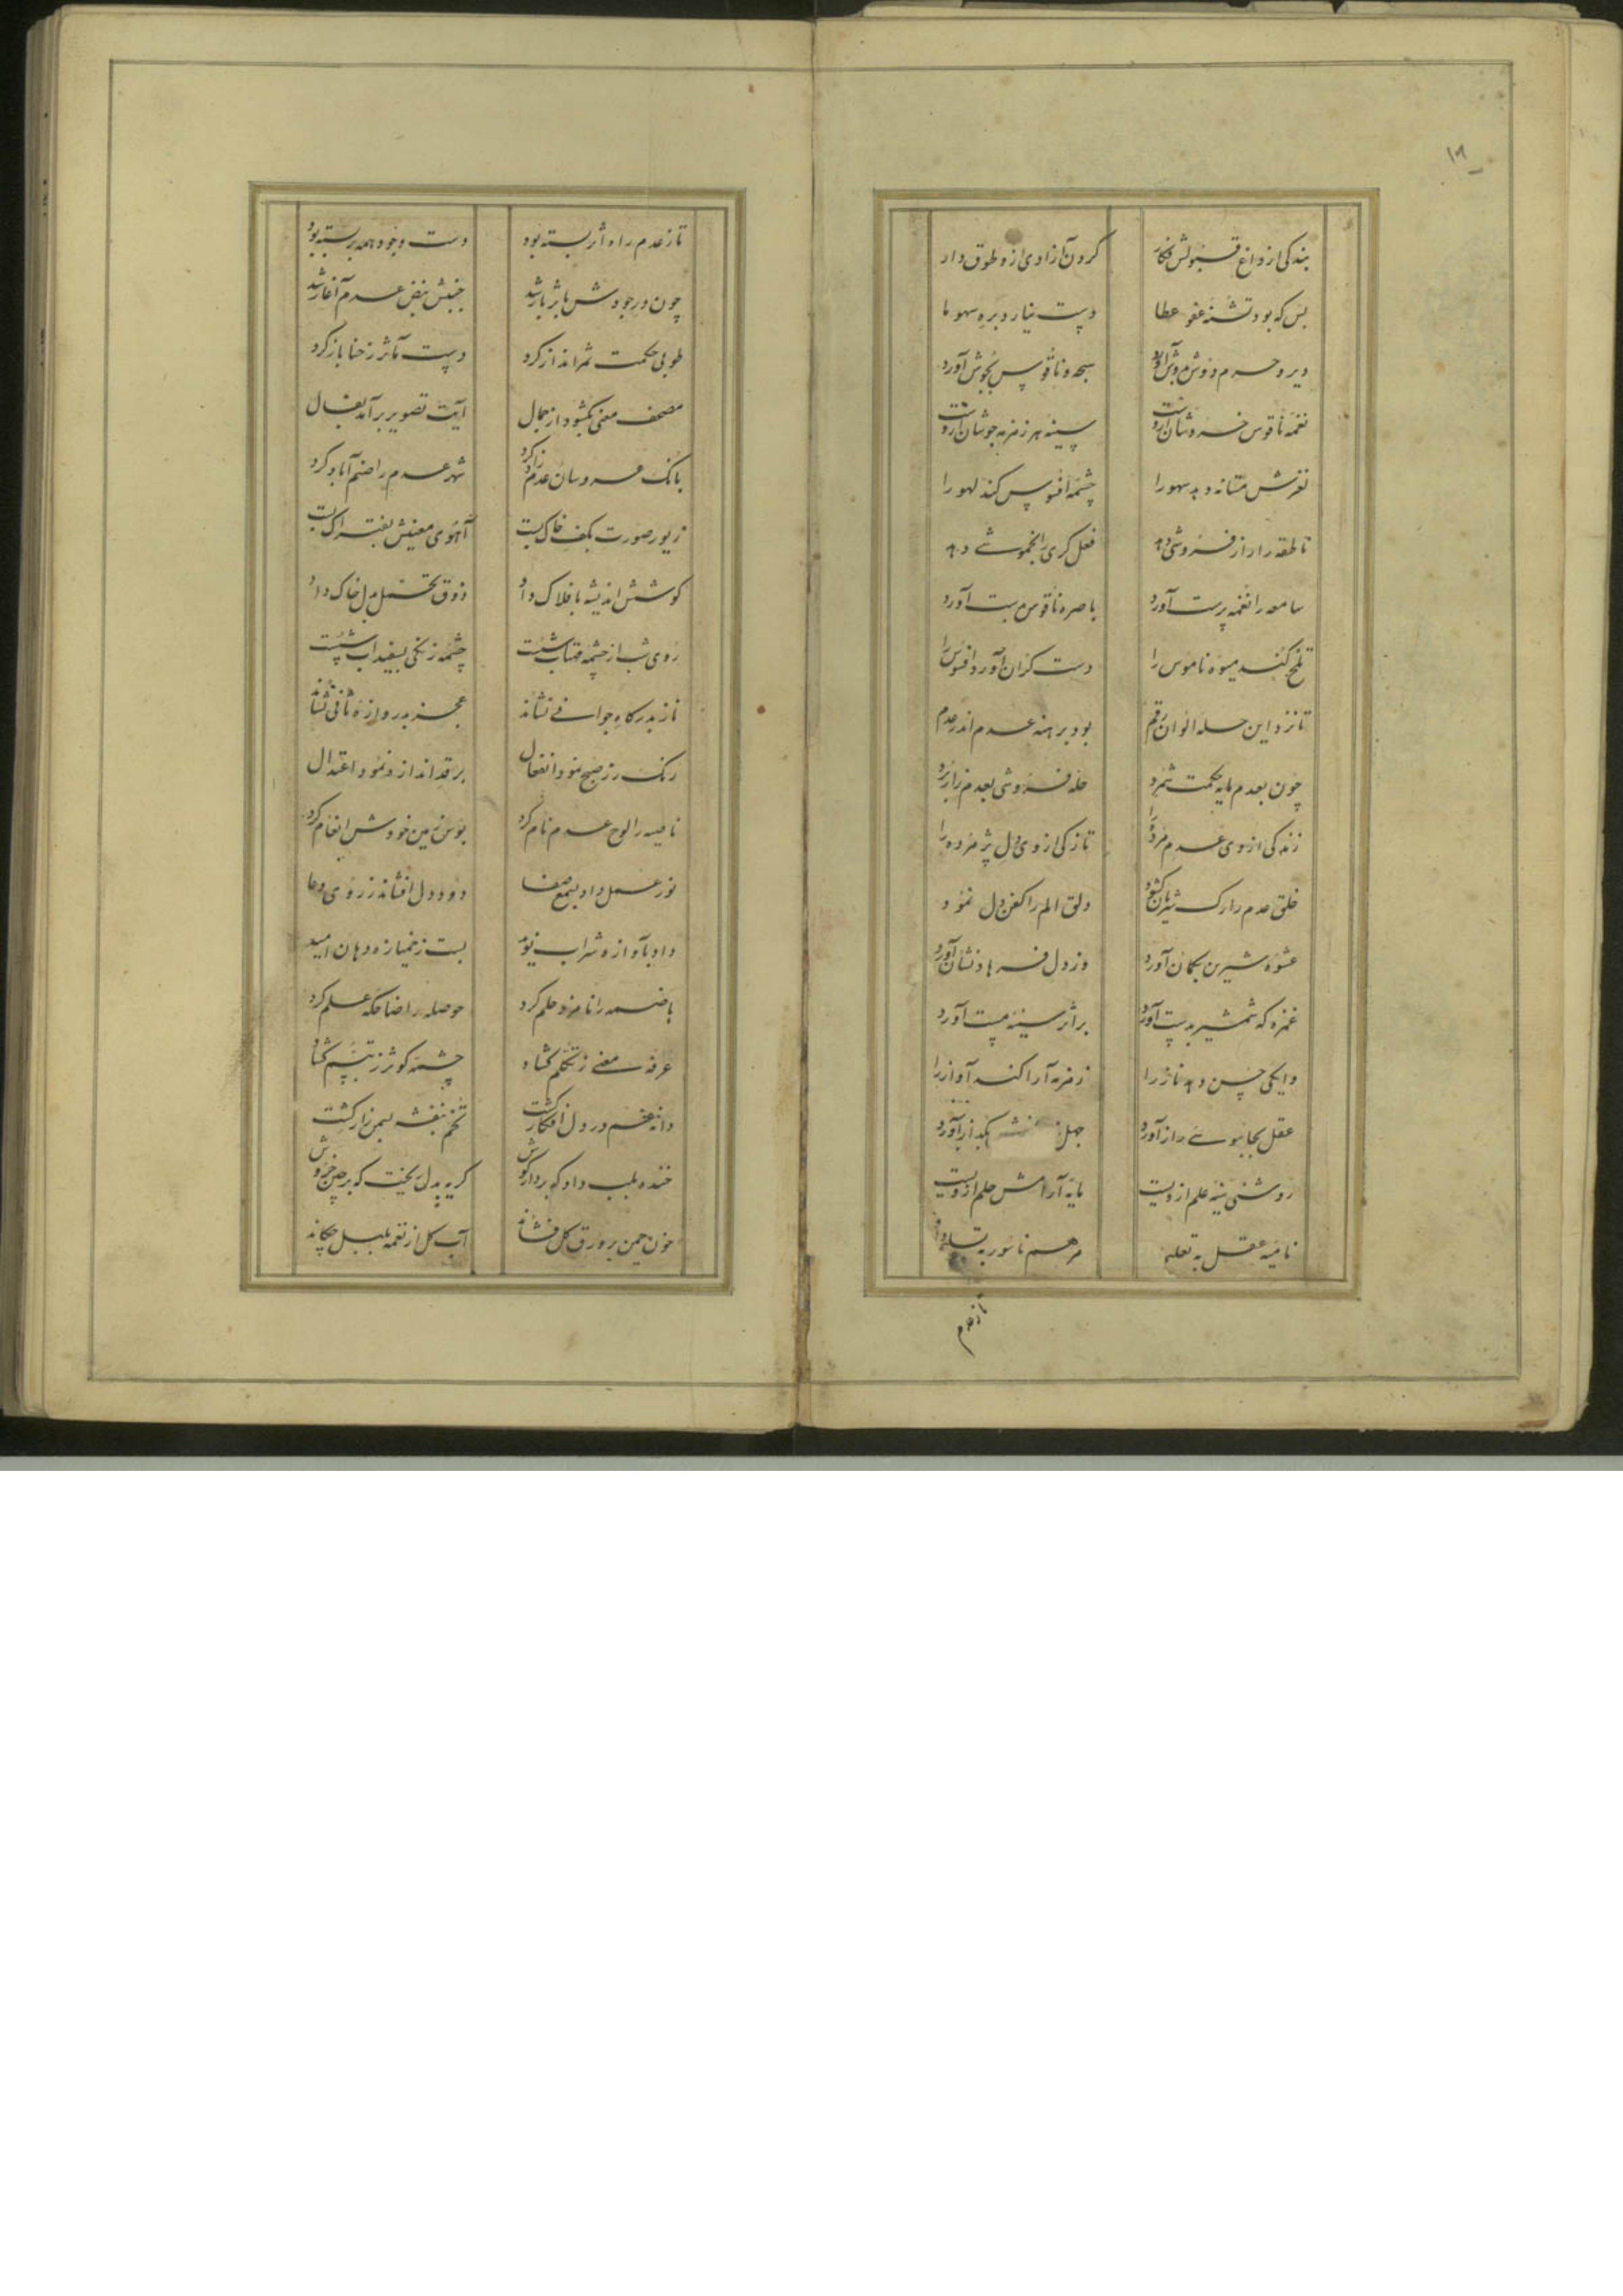 ۱۹
بندگی از داغ قبولش فکار گردن آزادی ازو طوق دار
بس که بود تشنه عفو عطا دست نیارد بره سهو ما
دیر و حرم دوش بدوش آورد سبحه و ناقوس بجوش آورد
نغمه ناقوس خروشان ازوست سینه هر زمزمه جوشان ازوست
لغزش مستانه دهد سهو را چشمه افسوس کند لهو را
ناطقه را راز فروشی دهد فعل کری را بخموشی دهد
سامعه را نغمه پرست آورد باصره ناقوس بدست آورد
تلخ کند میوه ناموس را دست گزان آورد افسوس را
تا نزد این حله الوان رقم بود برهنه عدم اندر عدم
چون بعدم مایه حکمت شمرد حله فروشی بعدم زان ببرد
زندگی از وی عدم مرده را تازگی از وی دل پژمرده را
خلق عدم را رگ شریان گشود دلق الم را کفن دل نمود
عشوه شیرین بکمان آورد وز دل فرهاد نشان آورد
غمزه که شمشیر بدست آورد بر اثر سینه مست آورد
دایگی حسن دهد ناز را زمزمه آرا کند آواز را
عقل بجاسوسی راز آورد جهل بگداز آورد
روشنی سینه علم ازویست مایه آرامش حلم ازویست
ناصیه عقل به تعلیم مرهم ناسور به تسلیم داد
تا ز عدم
تا ز عدم راه اثر بسته بود دست وجود همه بر بسته بود
چون در جودش باثر باز شد جنبش نبض عدم آغاز شد
طوبی حکمت ثمر انداز کرد دست مآثر ز حنا باز کرد
مصحف معنی بگشود از جمال آیت تصویر بر آمد بفال
بانگ عروسان عدم زاد کرد شهر عدم را صنم آباد کرد
زیور صورت بکف خاک بست آهوی معنیش بفتراک بست
کوشش اندیشه بافلاک داد ذوق تحمل بدل خاک داد
روی شب از چشمه مهتاب شست چشمه زنگی بسفیداب شست
ناز بدرگاه جوانی نشاند عجز بدروازه فانی نشاند
رنگ رز صبح نمود انفعال بر قد انداز نمود اعتدال
ناصیه را لوح عدم نام کرد بوس زمین خودش انعام کرد
نور عمل داد بشمع صفا دود دل افشاند ز روی دعا
داد بآوازه شراب نوید بست ز خمیازه دهان امید
هاضمه را نامزد حلم کرد حوصله را ضاحکه علم کرد
غرفه معنی ز تکلم گشاد چشمه کوثر ز تبسم گشاد
دانه غم در دل افکار کشت تخم بنفشه بسمن زار کشت
خنده بلب داد که بردار گوش گریه بدل ریخت که بر چین خروش
خون چمن بر ورق گل فشاند آب گل از نغمه بلبل چکاند